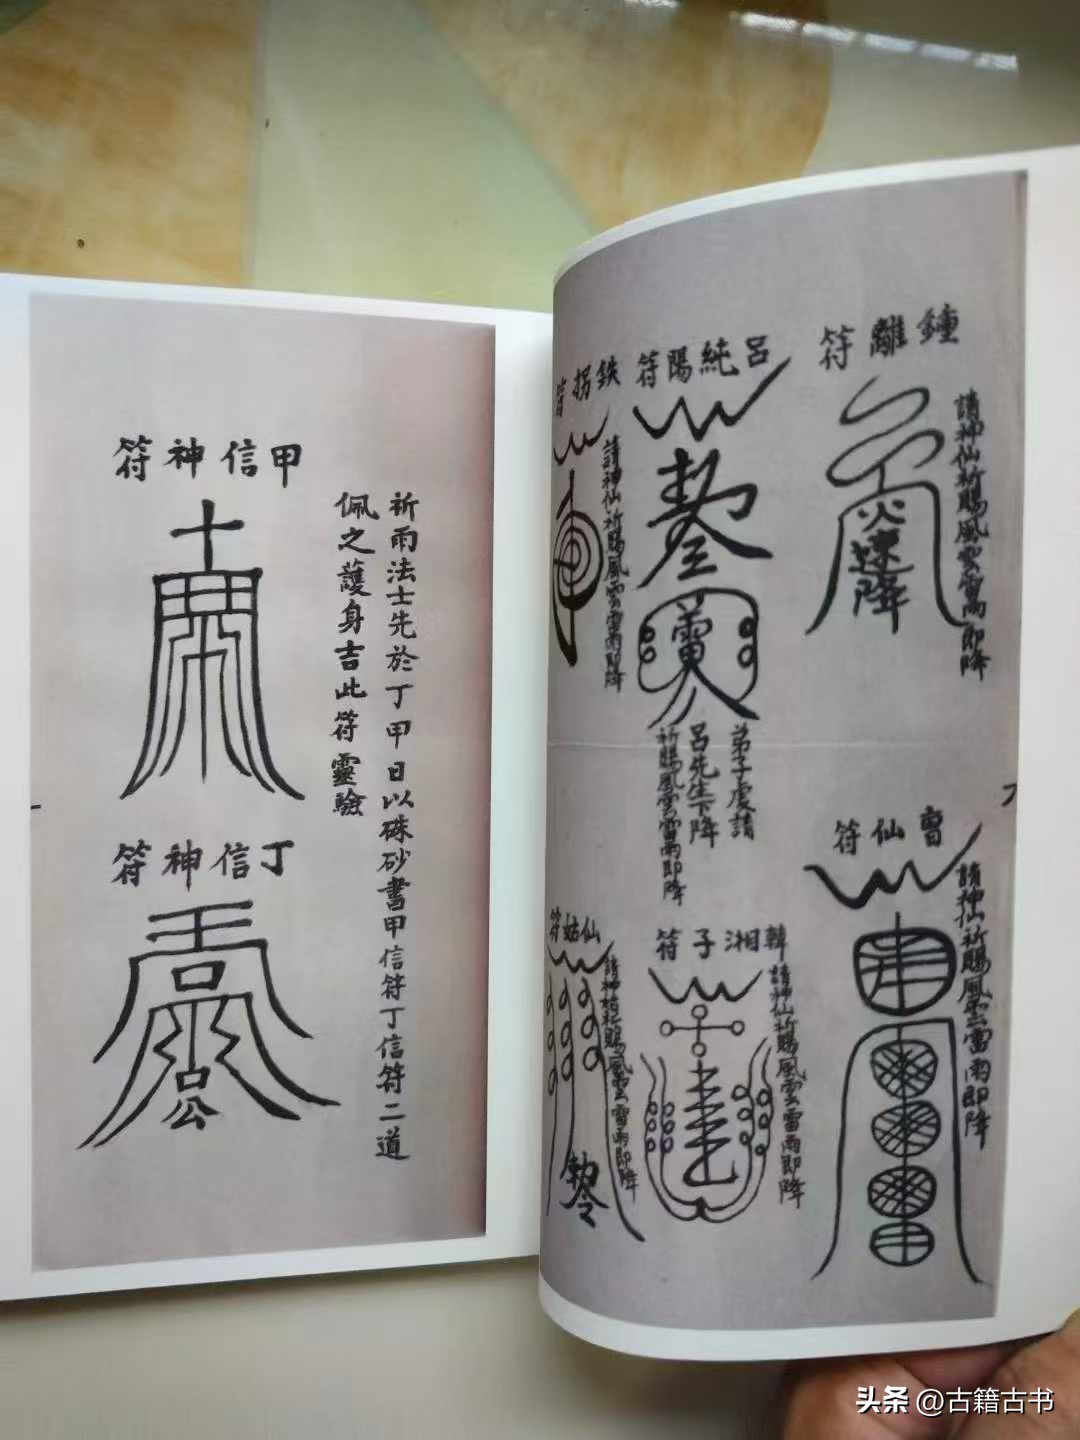 鍾離符
請神仙祈賜風雲雷雨即降
火速降
呂純陽符
雷
弟子虔請
呂先生下降
祈賜風雲雷雨即降
鉄拐符
請神仙祈賜風雲雷雨即降
曹仙符
請神仙祈賜風雲雷雨即降
韓湘子符
請神仙祈賜風雲雷雨即降
仙姑符
請神姑祈賜風雲雷雨即降
勅令
甲信神符
祈雨法士先於丁甲日以硃砂書甲信符丁信符二道
佩之護身吉此符靈驗
丁信神符
头条 @古籍古书